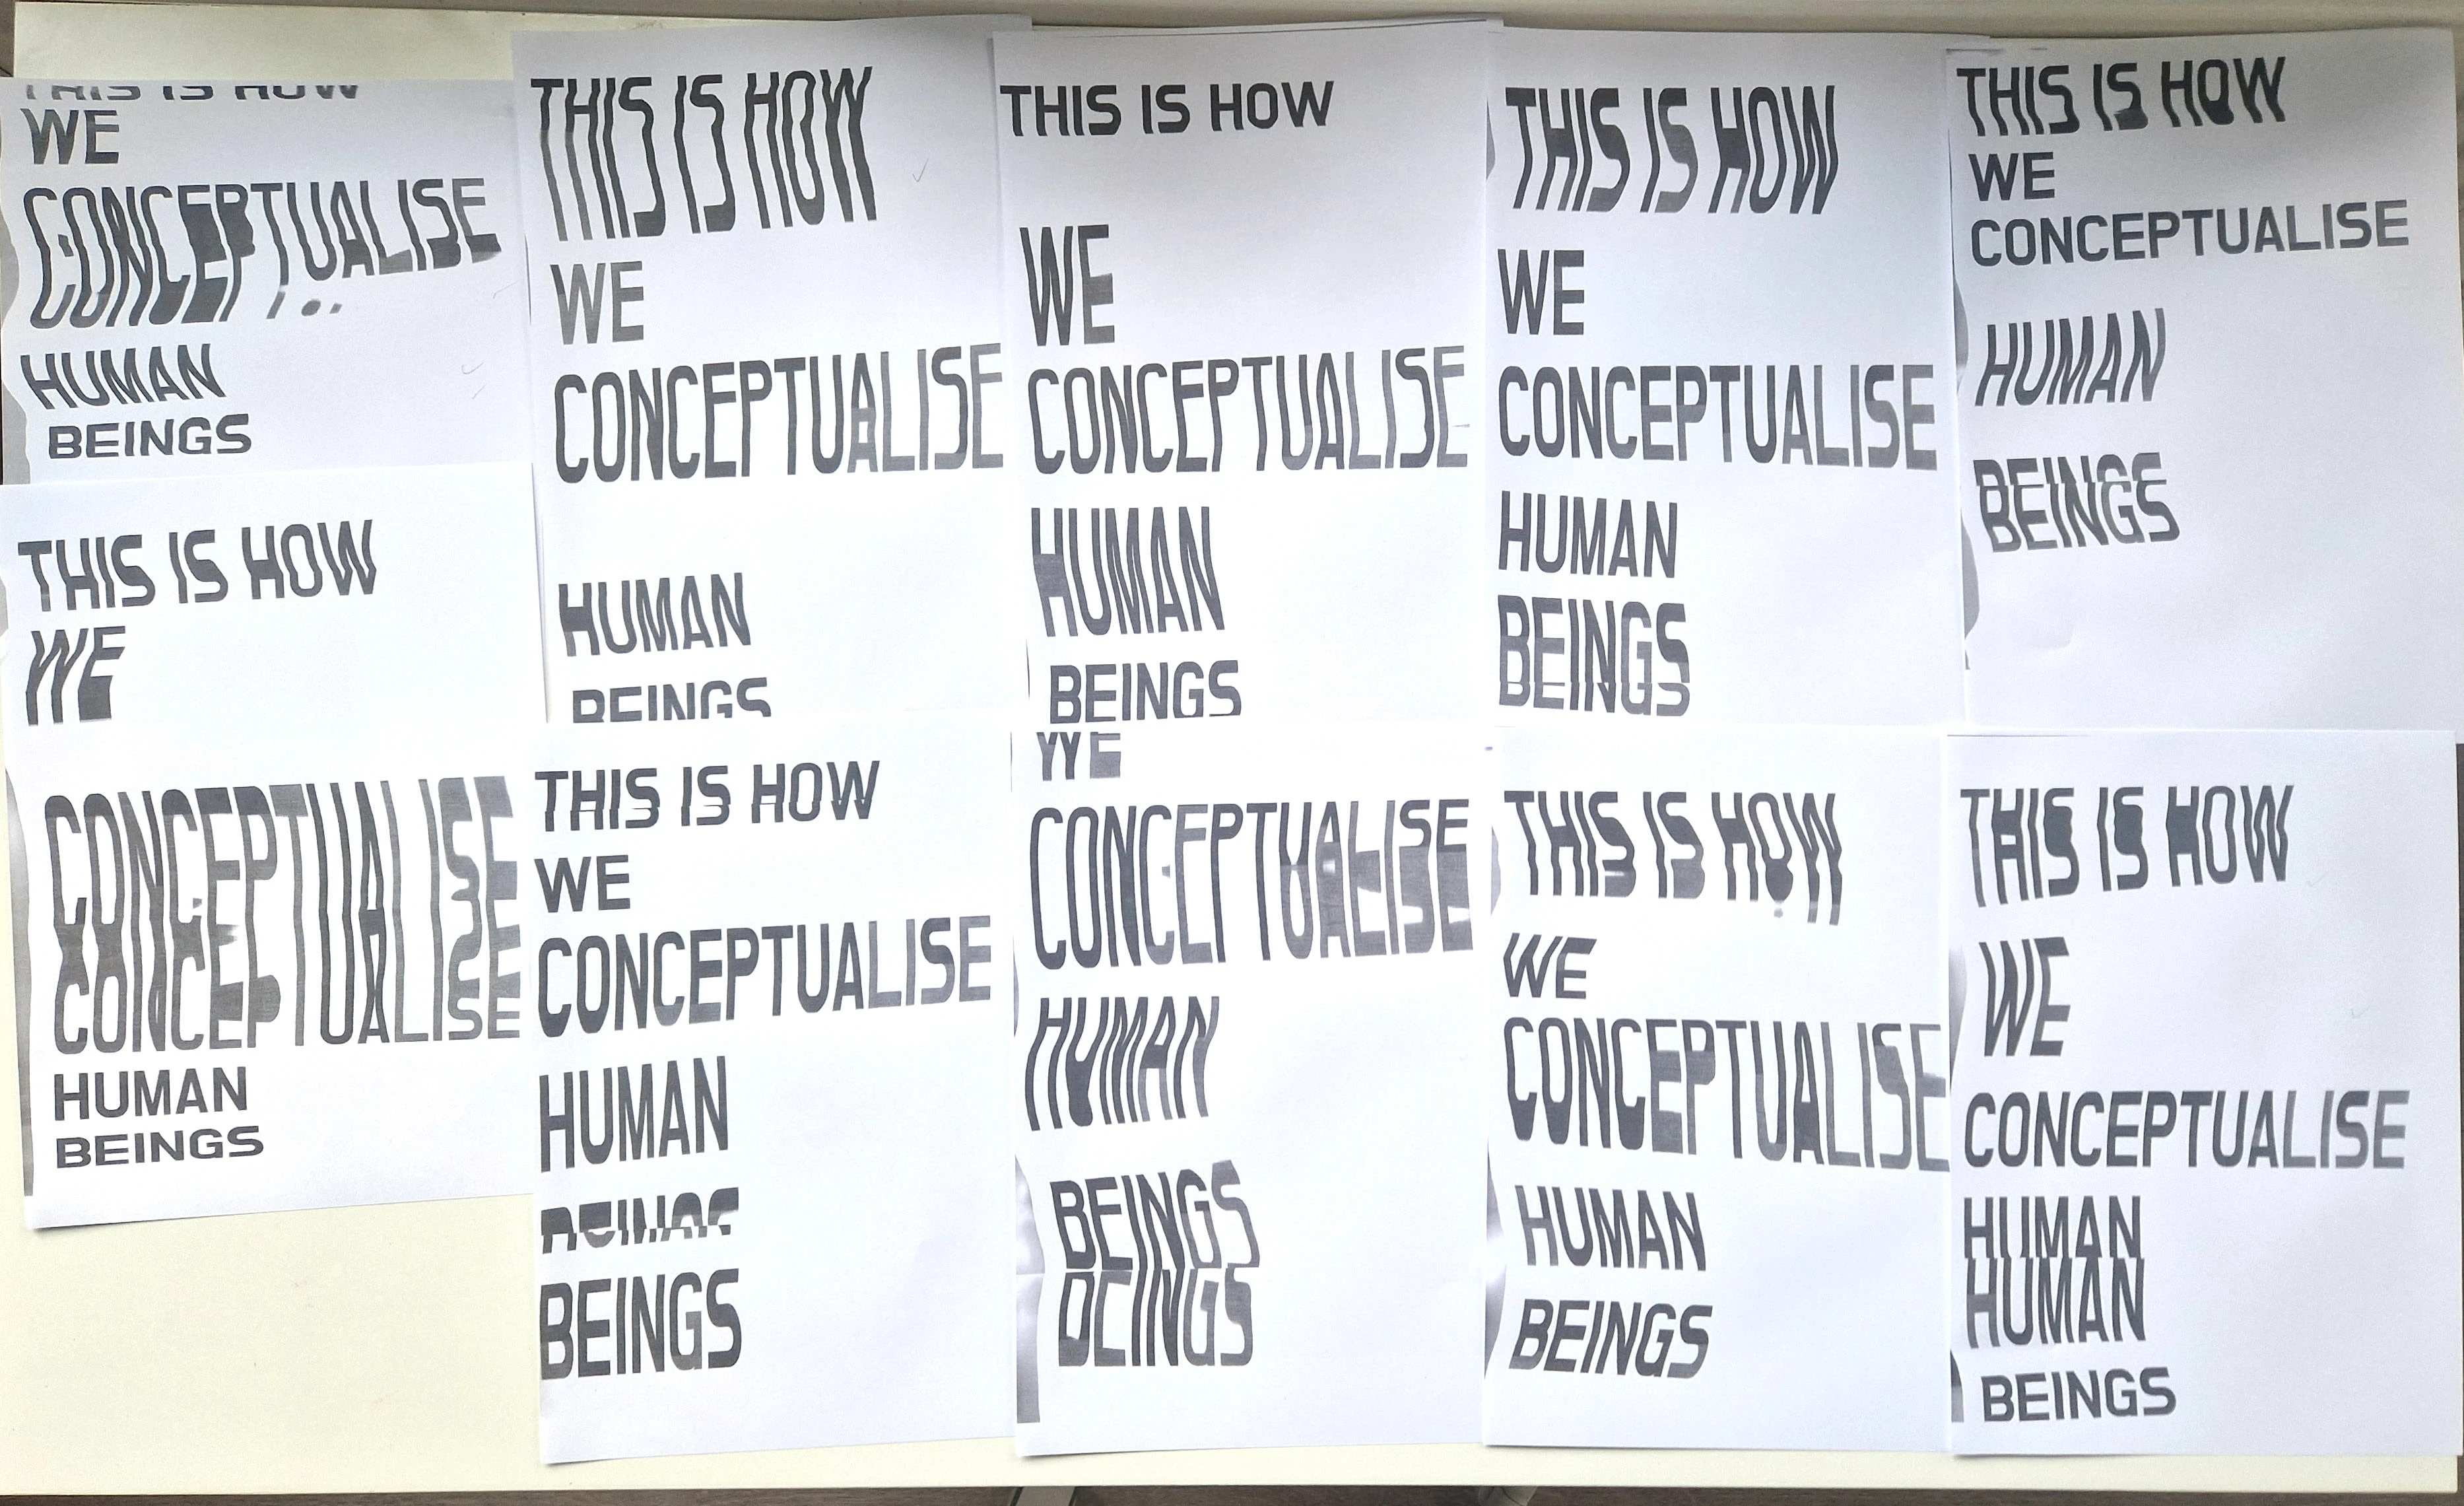 THIS IS HOW
WE
CONCEPTUALISE
HUMAN
BEINGS
THIS IS HOW
WE
CONCEPTUALISE
HUMAN
BEINGS
THIS IS HOW
WE
CONCEPTUALISE
HUMAN
BEINGS
THIS IS HOW
WE
CONCEPTUALISE
HUMAN
BEINGS
THIS IS HOW
WE
CONCEPTUALISE
HUMAN
BEINGS
THIS IS HOW
WE
CONCEPTUALISE
CONCEPTUALISE
HUMAN
BEINGS
THIS IS HOW
WE
CONCEPTUALISE
HUMAN
BEINGS
WE
CONCEPTUALISE
HUMAN
BEINGS
BEINGS
THIS IS HOW
WE
CONCEPTUALISE
HUMAN
BEINGS
THIS IS HOW
WE
CONCEPTUALISE
HUMAN
HUMAN
BEINGS